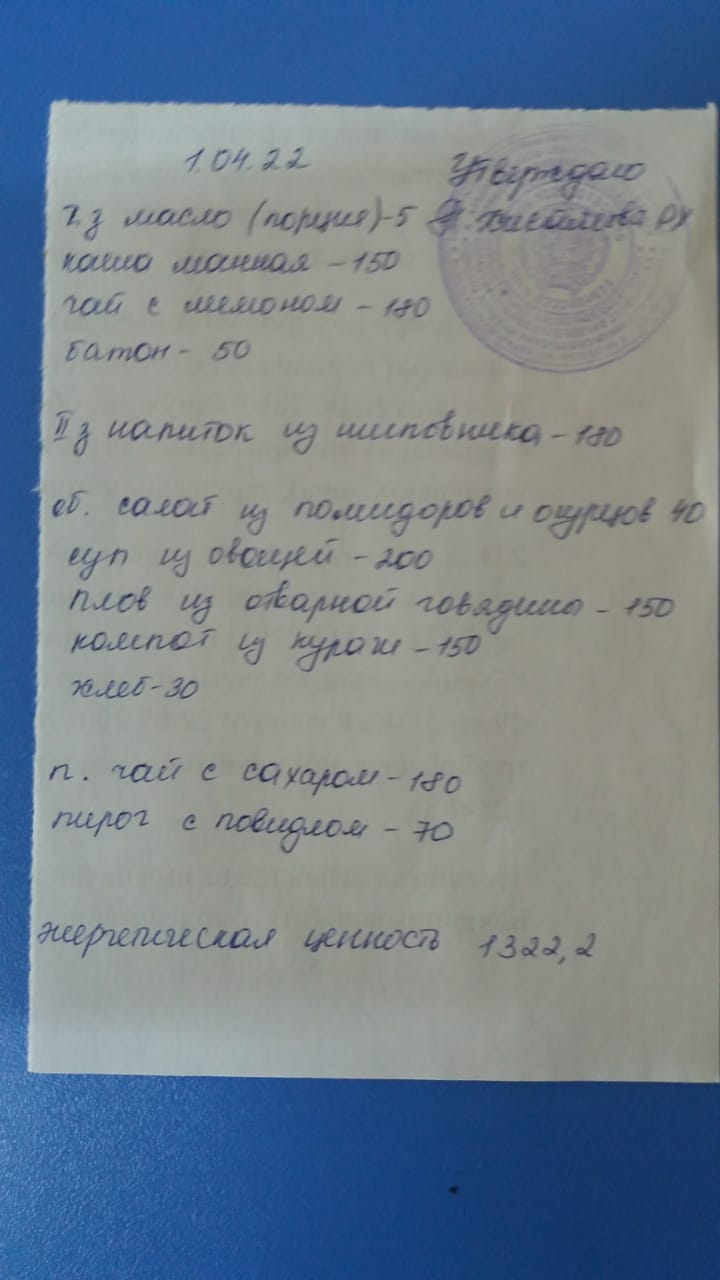 1.04.22 Утверждаю
I з масло (порция)-5
каша манная - 150
чай с лимоном - 180
батон - 50
II з напиток из шиповника - 180
об. салат из помидоров и огурцов 40
суп из овощей - 200
плов из отварной говядины - 150
компот из кураги - 150
хлеб - 30
п. чай с сахаром - 180
пирог с повидлом - 70
энергетическая ценность 1322,2